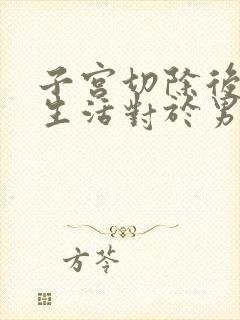 子宮切除後
生活對於男
方芩